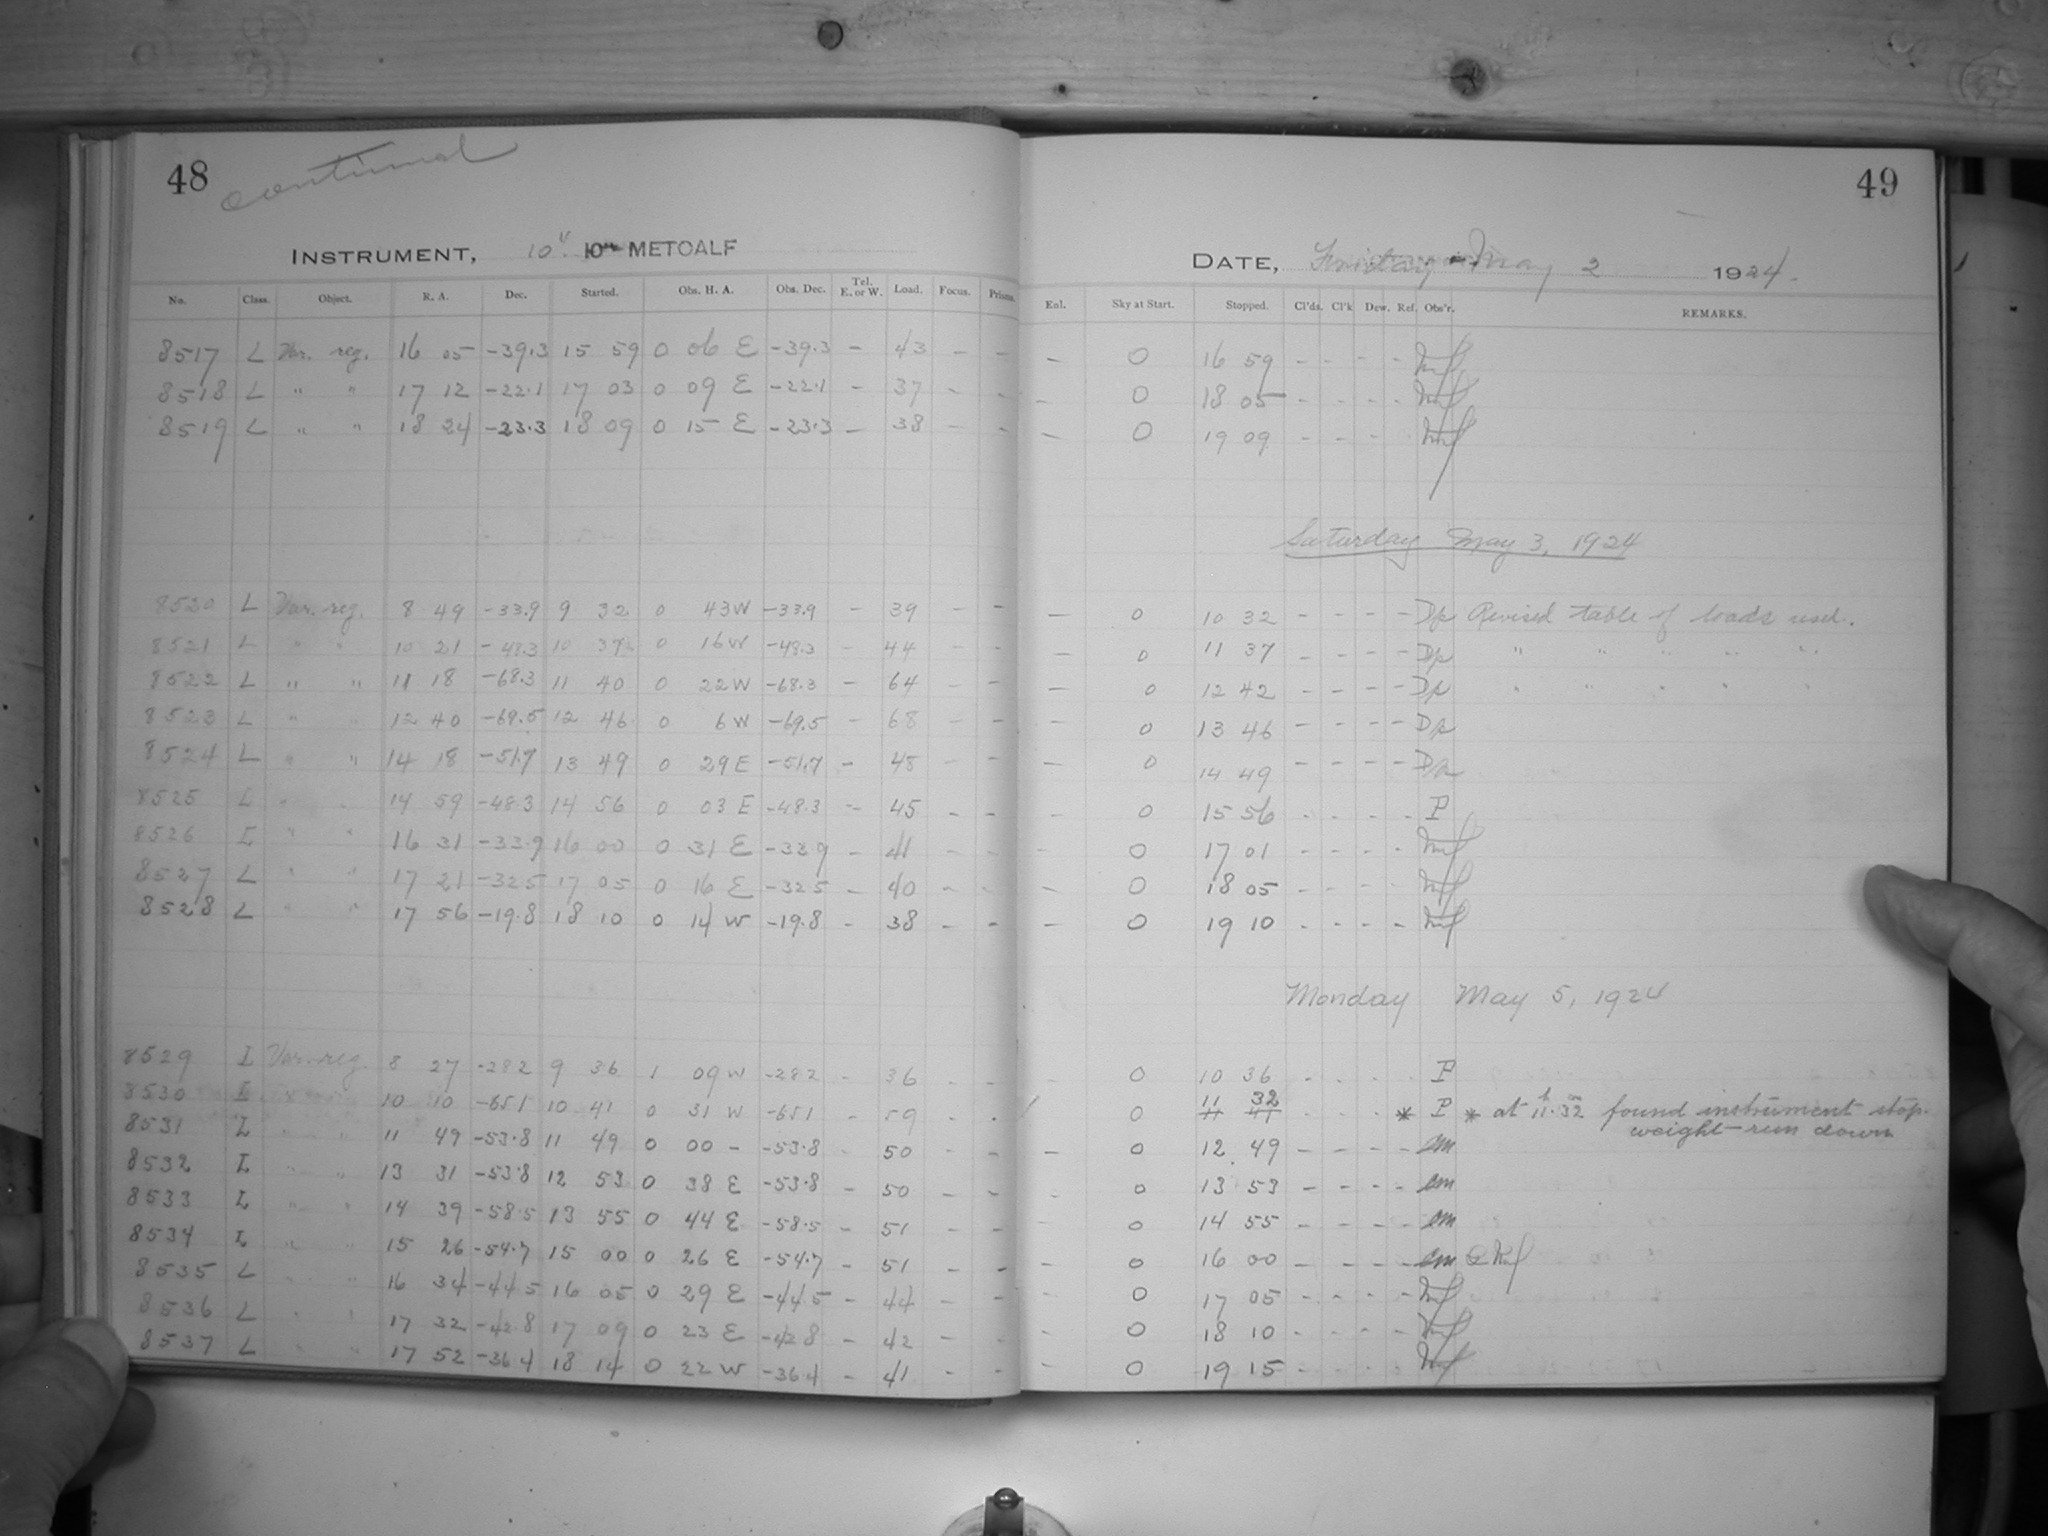 48 continued
49
INSTRUMENT, 10" 10 in METCALF
DATE, Friday May 2 1924.
No. Class. Object. R. A. Dec. Started. Obs. H. A. Obs. Dec. Tel. E. or W. Load. Focus. Prisms. Enl. Sky at Start. Stopped. Cl'ds. Cl'k Dew. Ref. Obs'r. REMARKS.
8517 L Var. reg. 16 05 -39.3 15 59 0 06 E -39.3 - 43 - - - 0 16 59 - - - -
8518 L " " 17 12 -22.1 17 03 0 09 E -22.1 - 37 - - - 0 18 05 - - - -
8519 L " " 18 24 -23.3 18 09 0 15 E -23.3 - 38 - - - 0 19 09 - - - -
Saturday May 3, 1924
8520 L Var. reg. 8 49 -33.9 9 32 0 43 W -33.9 - 39 - - - 0 10 32 - - - - Dp Revised table of loads used.
8521 L " " 10 21 -48.3 10 37 0 16 W -48.3 - 44 - - - 0 11 37 - - - - Dp " " " " "
8522 L " " 11 18 -68.3 11 40 0 22 W -68.3 - 64 - - - 0 12 42 - - - - Dp " " " " "
8523 L " " 12 40 -69.5 12 46 0 6 W -69.5 - 68 - - - 0 13 46 - - - - Dp
8524 L " " 14 18 -51.7 13 49 0 29 E -51.7 - 48 - - - 0 14 49 - - - - Dp
8525 L " " 14 59 -48.3 14 56 0 03 E -48.3 - 45 - - - 0 15 56 - - - - P
8526 L " " 16 31 -33.9 16 00 0 31 E -33.9 - 41 - - - 0 17 01 - - - -
8527 L " " 17 21 -32.5 17 05 0 16 E -32.5 - 40 - - - 0 18 05 - - - -
8528 L " " 17 56 -19.8 18 10 0 14 W -19.8 - 38 - - - 0 19 10 - - - -
Monday May 5, 1924
8529 L Var. reg. 8 27 -28.2 9 36 1 09 W -28.2 - 36 - - - 0 10 36 - - - - P
8530 L " " 10 10 -65.1 10 41 0 31 W -65.1 - 59 - - - 0 11 32 11 41 - - - * P * at 11h.32m found instrument stop.
weight-run down
8531 L " " 11 49 -53.8 11 49 0 00 - -53.8 - 50 - - - 0 12 49 - - - - am
8532 L " " 13 31 -53.8 12 53 0 38 E -53.8 - 50 - - - 0 13 53 - - - - am
8533 L " " 14 39 -58.5 13 55 0 44 E -58.5 - 51 - - - 0 14 55 - - - - am
8534 L " " 15 26 -54.7 15 00 0 26 E -54.7 - 51 - - - 0 16 00 - - - - am
8535 L " " 16 34 -44.5 16 05 0 29 E -44.5 - 44 - - - 0 17 05 - - - -
8536 L " " 17 32 -42.8 17 09 0 23 E -42.8 - 42 - - - 0 18 10 - - - -
8537 L " " 17 52 -36.4 18 14 0 22 W -36.4 - 41 - - - 0 19 15 - - - -